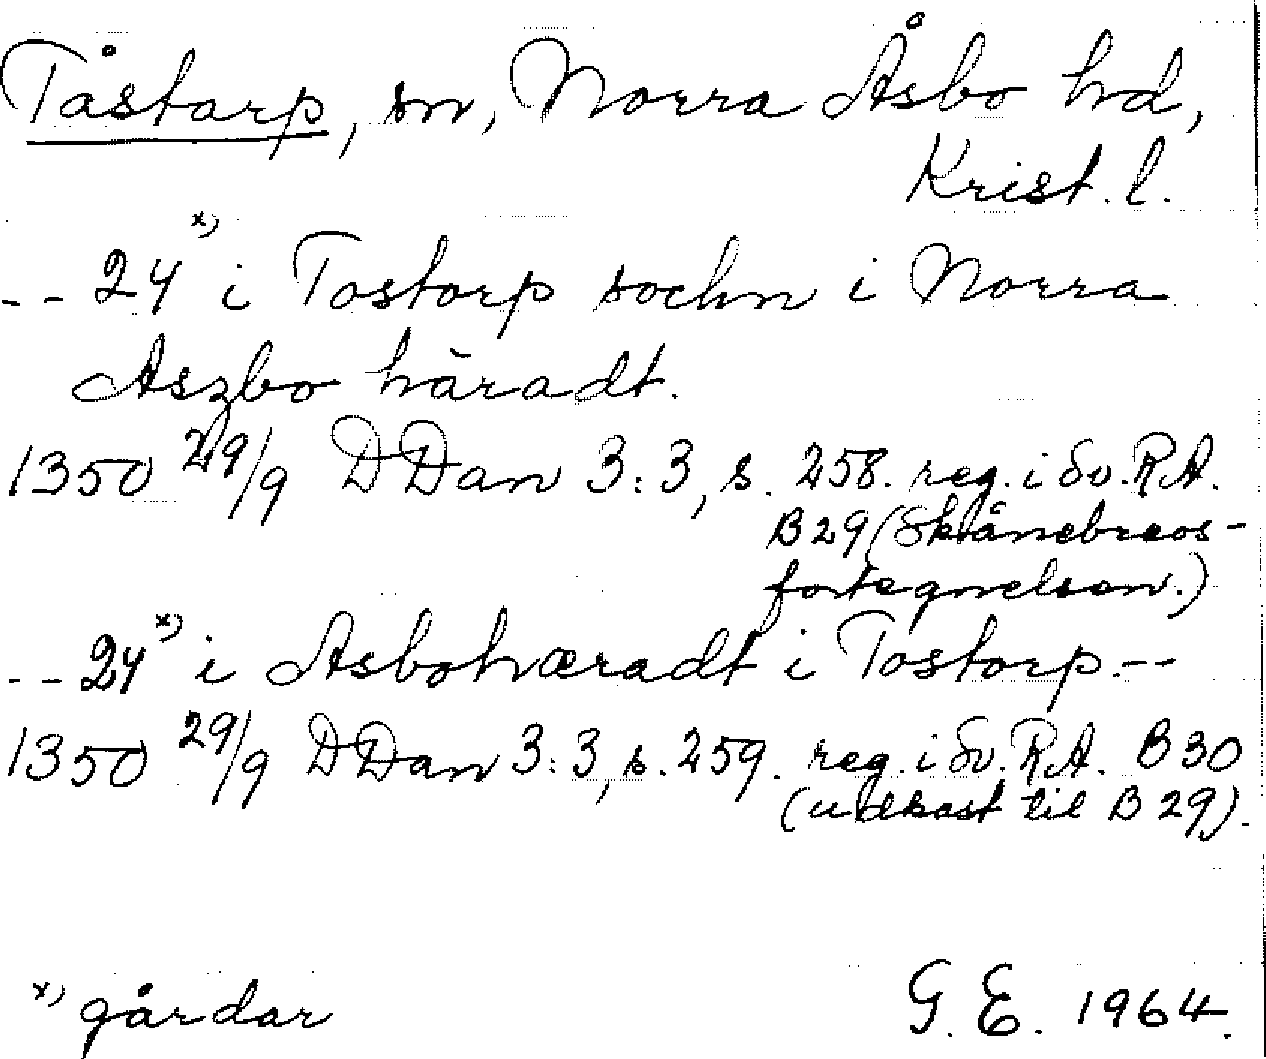 Tåstarp, sn, Norra Åsbo hd,
Krist. l.
-- 24 x) i Tostorp sochn i Norra
Aszbo häradt.
1350 29/9 DDan 3:3, s. 258. reg. i Sv. R.A.
B 29 (Skånebrevs-
fortegnelsen.)
-- 24 x) i Asbohæradt i Tostorp.--
1350 29/9 DDan 3:3, s. 259. reg. i Sv. R.A. B 30
(udkast til B 29).
x) gårdar
G. E. 1964.